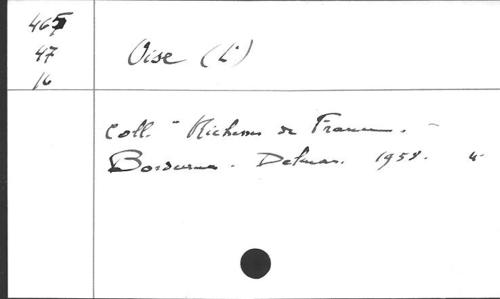 465
47
16
Oise (L')
Coll. "Richesses de France. -
Bordeaux. Delmas. 1958. 4°